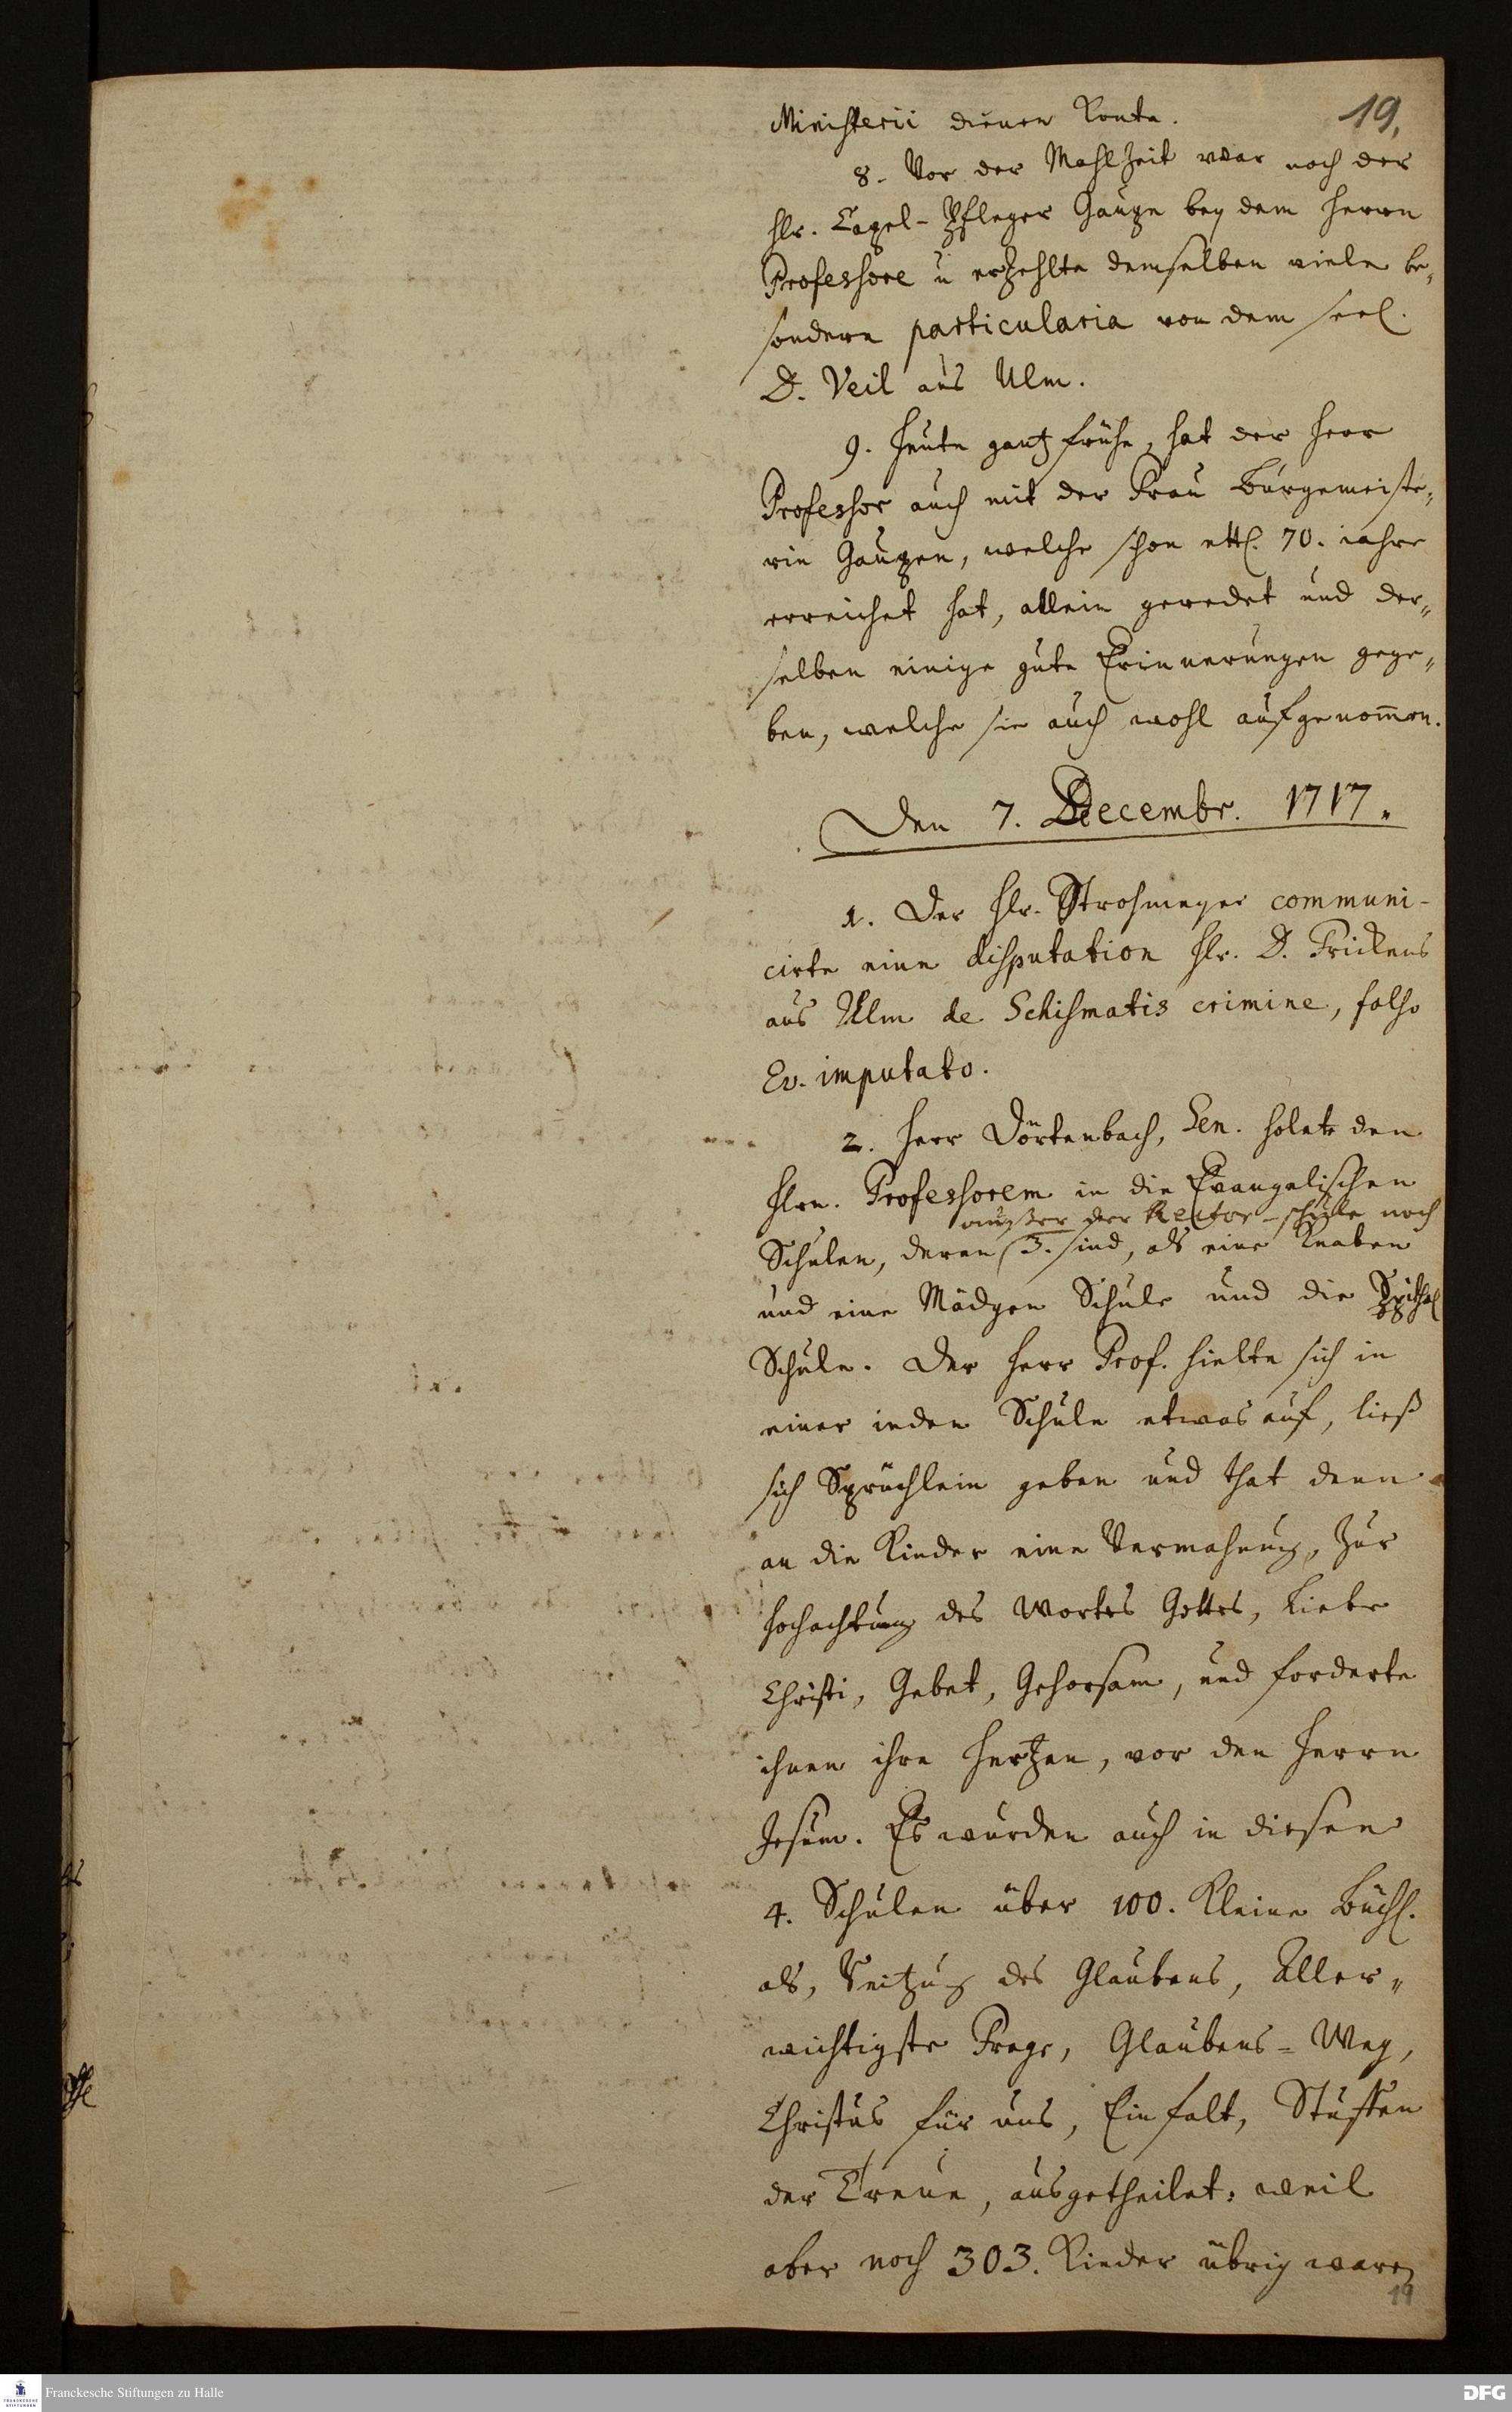 19,
Ministerii dienen konte.
8. Vor der Mahlzeit war noch der
Hr. Capel-Pfleger Gaupe bey dem Herrn
Professore u erzehlte demselben viele be-
sondere particularia von dem seel.
D. Veil aus Ulm.
9. Heute gantz frühe, hat der Herr
Professor auch mit der Frau Burgemeiste-
rin Gaupen, welche schon ettl. 70. iahre
erreichet hat, allein geredet und der-
selben einige gute Erinnerungen gege-
ben, welche sie auch wohl aufgenom̅en.
Den 7. Decembr. 1717.
1. Der Hr. Strohmeyer communi-
cirte eine disputation Hr. D. Frickens
aus Ulm de Schismatis crimine, falso
Ev. imputato.
2. Herr Dörtenbach, Sen. holete den
Hrn. Professorem in die Evangelischen
außer der Rector-schule noch
Schulen, deren 3. sind, als eine Knaben
und eine Mädgen Schule und die Spithal
Schule. Der Herr Prof. hielte sich in
einer ieden Schule etwas auf, ließ
sich Sprüchlein geben und that denn
an die Kinder eine Vermahnung, zur
Hochachtung des Wortes Gottes, Liebe
Christi, Gebet, Gehorsam, und forderte
ihnen ihre Hertzen, vor den Herrn
Jesum. Es wurden auch in diesen
4. Schulen über 100. kleine Büchl.
als, des Glaubens, Aller-
wichtigste Frage, Glaubens-Weg,
Christus für uns, Einfalt, Stuffen
der Treue, ausgetheilet; weil
aber noch 303. Kinder übrig waren
19
Franckesche Stiftungen zu Halle
DFG